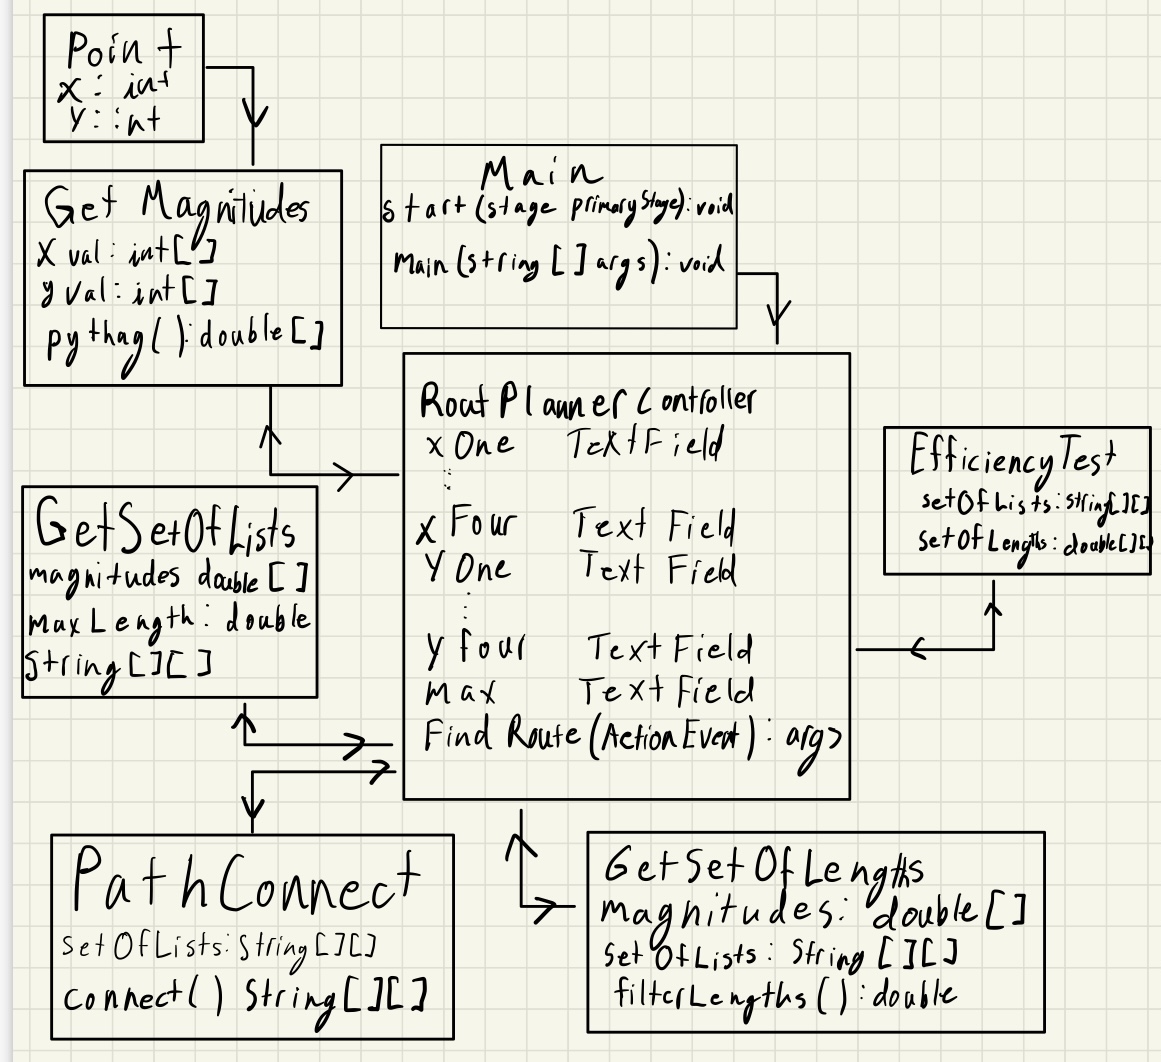 Point
x: int
y: int
Get Magnitudes
X val: int[]
y val: int[]
pythag(): double[]
Main
start(stage primaryStage): void
Main(string[] args): void
RoutPlannerController
xOne TextField
x Four Text Field
Y One Text Field
y four Text Field
max Text Field
Find Route(ActionEvent): arg>
EfficiencyTest
setOfLists: String[][]
setOfLengths: double[][]
GetSetOfLists
magnitudes double[]
maxLength: double
String[][]
PathConnect
setOfLists: String[][]
connect() String[][]
GetSetOfLengths
magnitudes: double[]
set OfLists: String[][]
filterLengths(): double